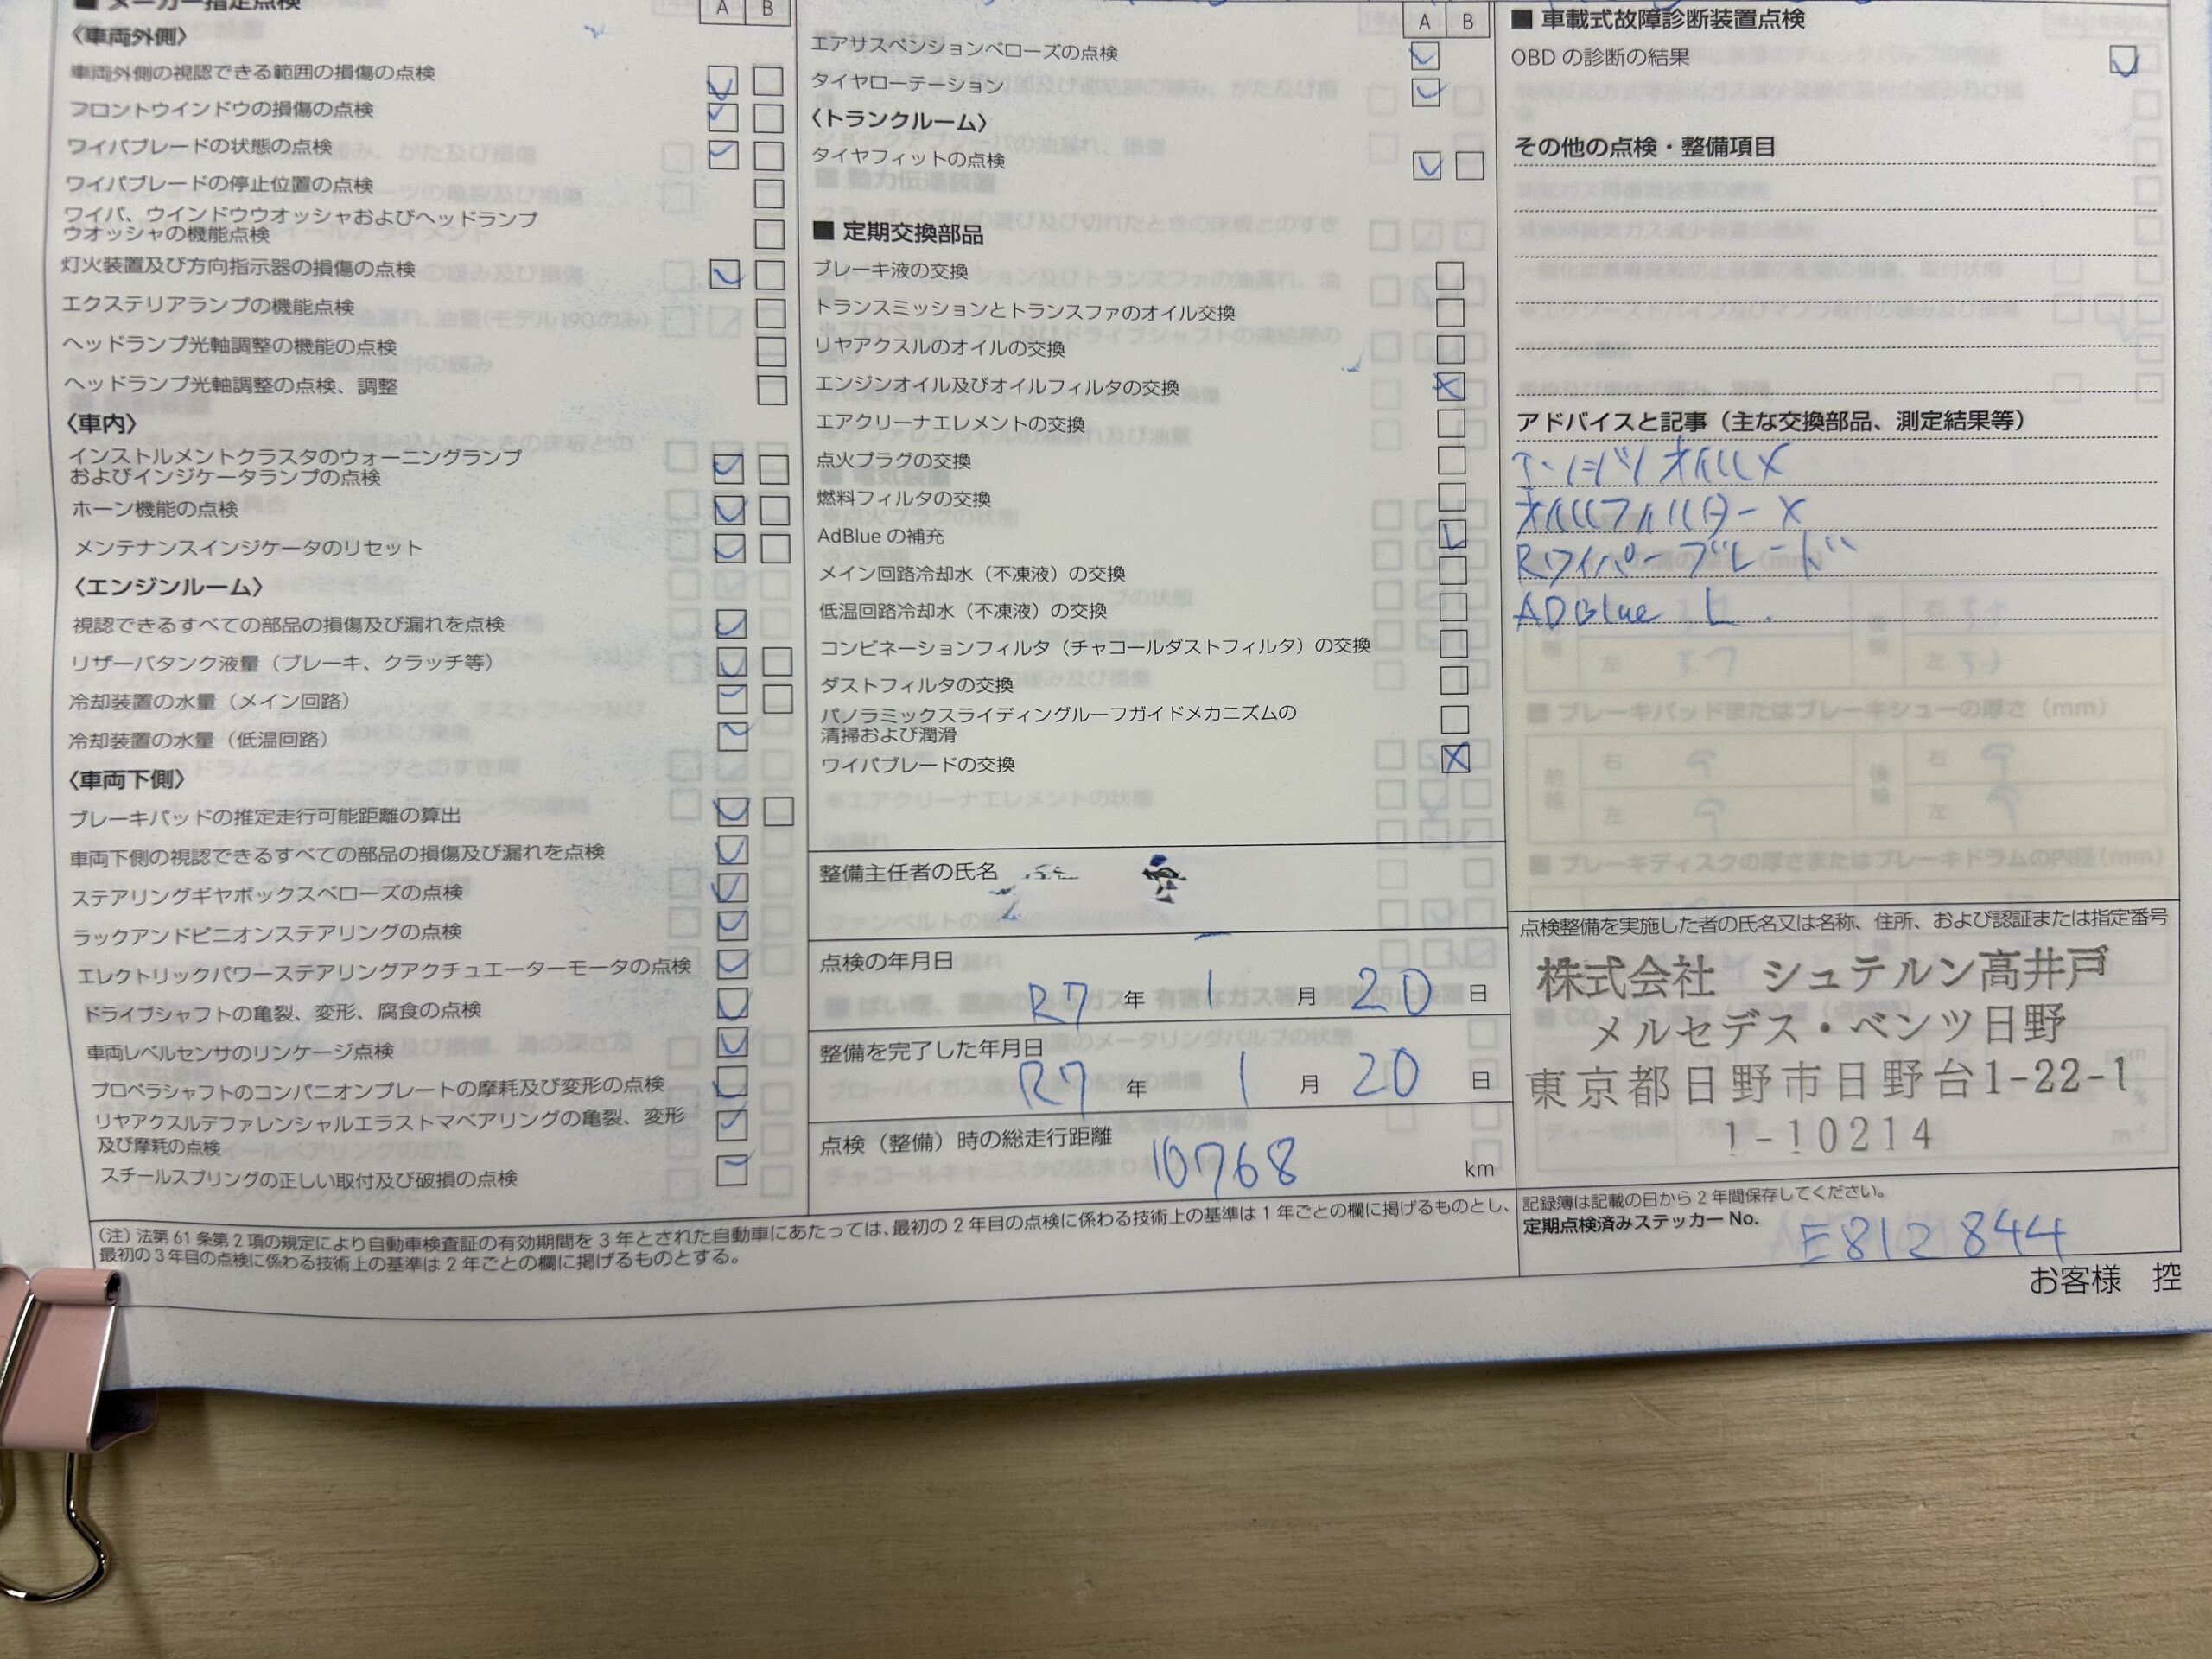 ■ メーカー指定点検
A B
〈車両外側〉
車両外側の視認できる範囲の損傷の点検
フロントウインドウの損傷の点検
ワイパブレードの状態の点検
ワイパブレードの停止位置の点検
ワイパ、ウインドウウオッシャおよびヘッドランプ
ウオッシャの機能点検
灯火装置及び方向指示器の損傷の点検
エクステリアランプの機能点検
ヘッドランプ光軸調整の機能の点検
ヘッドランプ光軸調整の点検、調整
〈車内〉
インストルメントクラスタのウォーニングランプ
およびインジケータランプの点検
ホーン機能の点検
メンテナンスインジケータのリセット
〈エンジンルーム〉
視認できるすべての部品の損傷及び漏れを点検
リザーバタンク液量（ブレーキ、クラッチ等）
冷却装置の水量（メイン回路）
冷却装置の水量（低温回路）
〈車両下側〉
ブレーキパッドの推定走行可能距離の算出
車両下側の視認できるすべての部品の損傷及び漏れを点検
ステアリングギヤボックスベローズの点検
ラックアンドピニオンステアリングの点検
エレクトリックパワーステアリングアクチュエーターモータの点検
ドライブシャフトの亀裂、変形、腐食の点検
車両レベルセンサのリンケージ点検
プロペラシャフトのコンパニオンプレートの摩耗及び変形の点検
リヤアクスルデファレンシャルエラストマベアリングの亀裂、変形
及び摩耗の点検
スチールスプリングの正しい取付及び破損の点検
A B
エアサスペンションベローズの点検
タイヤローテーション
〈トランクルーム〉
タイヤフィットの点検
■ 定期交換部品
ブレーキ液の交換
トランスミッションとトランスファのオイル交換
リヤアクスルのオイルの交換
エンジンオイル及びオイルフィルタの交換 ×
エアクリーナエレメントの交換
点火プラグの交換
燃料フィルタの交換
AdBlue の補充 L
メイン回路冷却水（不凍液）の交換
低温回路冷却水（不凍液）の交換
コンビネーションフィルタ（チャコールダストフィルタ）の交換
ダストフィルタの交換
パノラミックスライディングルーフガイドメカニズムの
清掃および潤滑
ワイパブレードの交換 ×
整備主任者の氏名
点検の年月日
R7 年 1 月 20 日
整備を完了した年月日
R7 年 1 月 20 日
点検（整備）時の総走行距離
10768 km
■ 車載式故障診断装置点検
OBD の診断の結果
その他の点検・整備項目
アドバイスと記事（主な交換部品、測定結果等）
エンジンオイル×
オイルフィルター ×
Rワイパーブレード
ADBlue L
点検整備を実施した者の氏名又は名称、住所、および認証または指定番号
株式会社 シュテルン高井戸
メルセデス・ベンツ日野
東京都日野市日野台1-22-1
1-10214
記録簿は記載の日から 2 年間保存してください。
定期点検済みステッカー No.
E812844
（注）法第 61 条第 2 項の規定により自動車検査証の有効期間を 3 年とされた自動車にあたっては、最初の 2 年目の点検に係わる技術上の基準は 1 年ごとの欄に掲げるものとし、
最初の 3 年目の点検に係わる技術上の基準は 2 年ごとの欄に掲げるものとする。
お客様 控